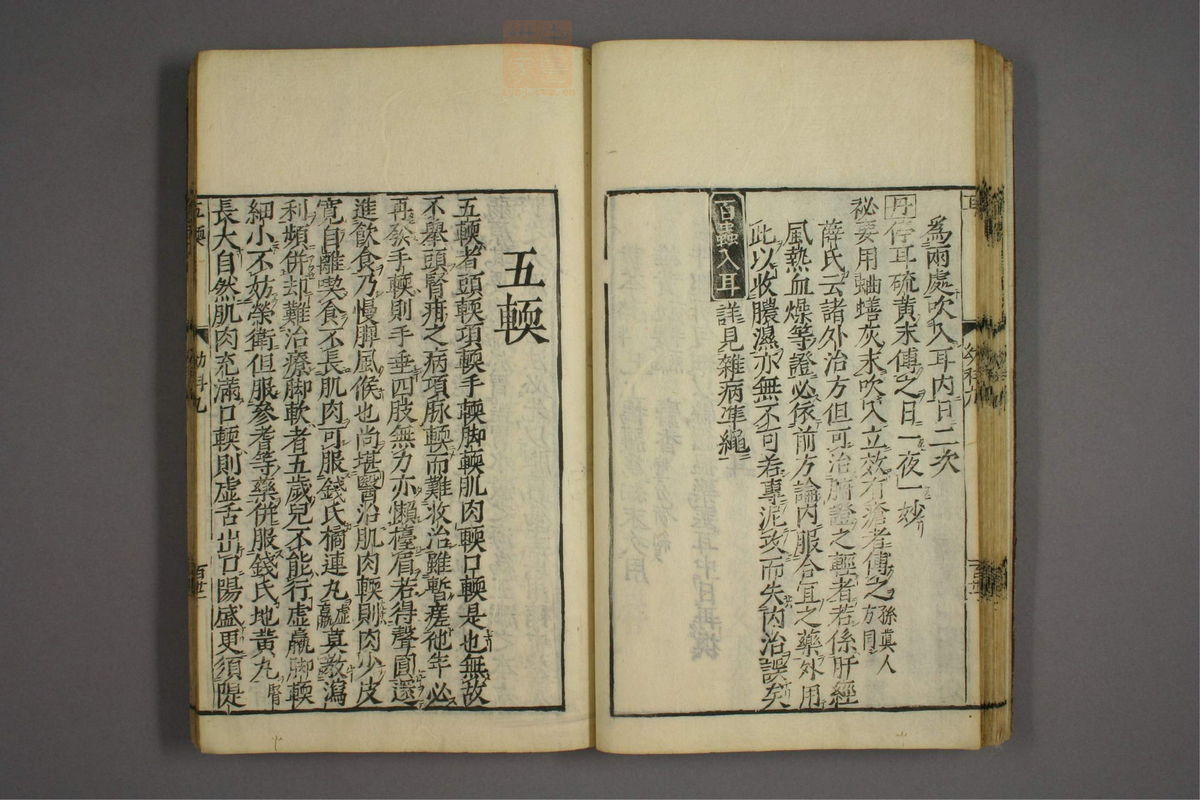 為兩處吹入耳內日二次
丹 停耳硫黃末傅之日一夜一妙
秘要用蚰蟮灰末吹入立效有瘡者傅之孫真人
方同
薛氏云諸外治方但可治腑證之輕者若係肝經
風熱血燥等證必依前方論內服合宜之藥外用
此以收膿濕亦無不可若專泥政而失內治誤矣
百蟲入耳 詳見雜病準繩
五輭
五輭者頭輭項輭手輭脚輭肌肉輭口輭是也無故
不舉頭腎疳之病項脉輭而難收治雖暫瘥他年必
再發手輭則手垂四肢無力亦懶擡眉若得聲圓還
進飲食乃慢脾風候也尚堪醫治肌肉輭則肉少皮
寬自離喫食不長肌肉可服錢氏橘連丸虛羸莫教瀉
利頻併却難治療脚軟者五歲兒不能行虛羸脚輭
細小不妨榮衛但服參耆等藥併服錢氏地黃丸腎
長大自然肌肉充滿口輭則虛舌出口陽盛更須隄
五輭
幼科九